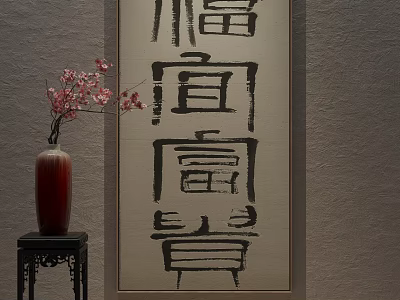 福宜富貴